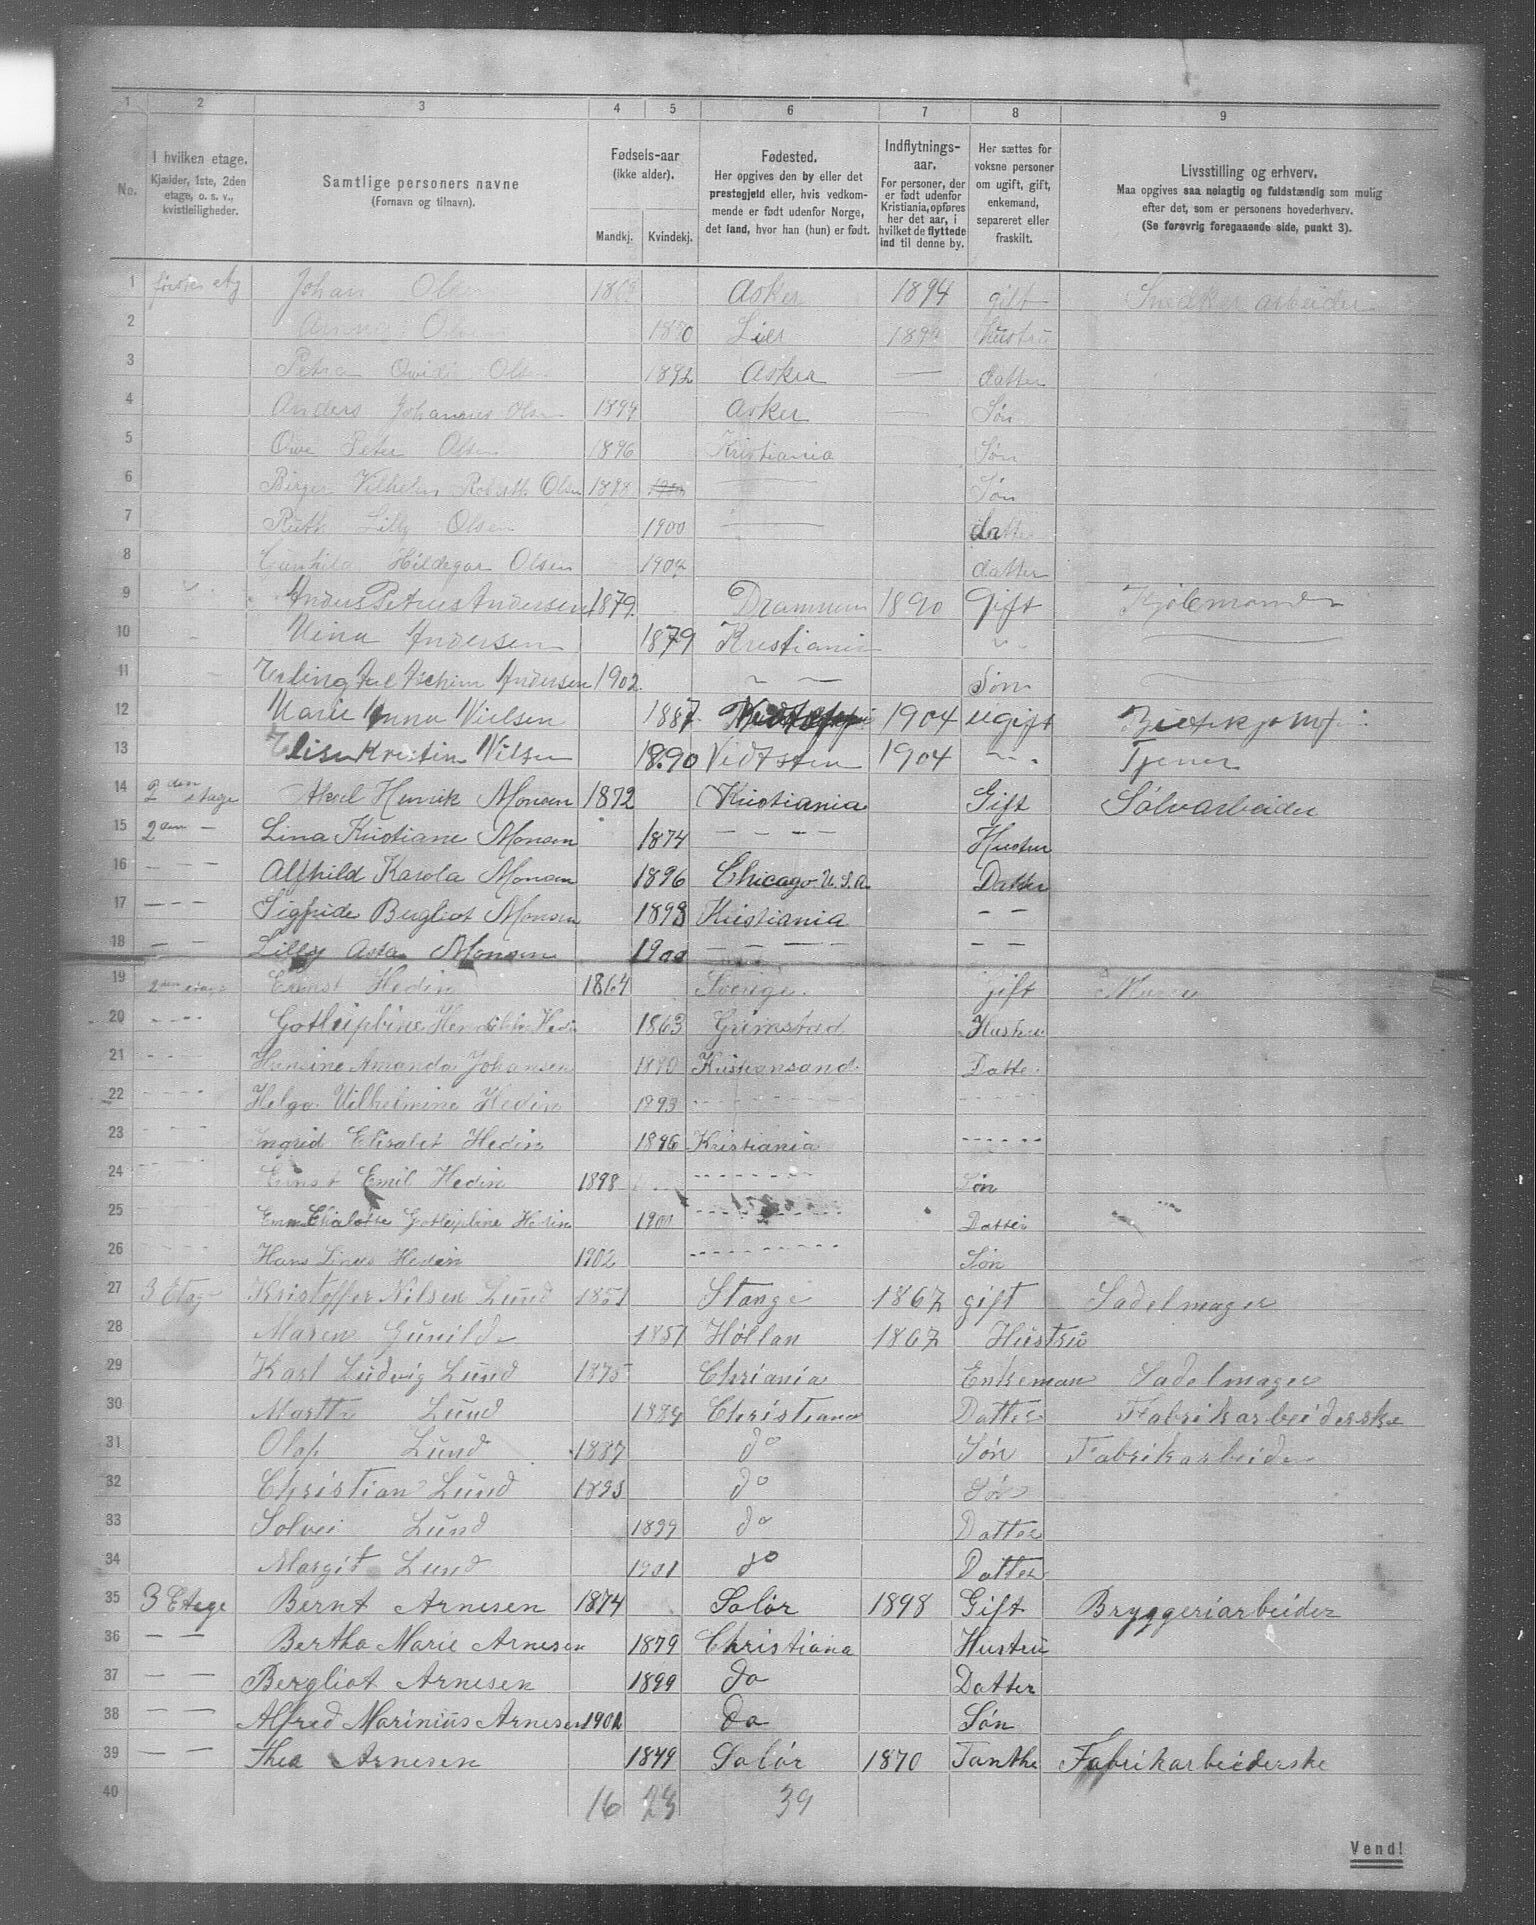 1 2 3 4 5 6 7 8 9
No.
I hvilken etage.
Kjælder, 1ste, 2den etage, o. s. v., kvistleiligheder.
Samtlige personers navne
(Fornavn og tilnavn).
Fødsels-aar
(ikke alder).
Mandkj. Kvindekj.
Fødested.
Her opgives den by eller det prestegjeld eller, hvis vedkommende er født udenfor Norge, det land, hvor han (hun) er født.
Indflytnings-aar.
For personer, der er født udenfor Kristiania, opføres her det aar, i hvilket de flyttede ind til denne by.
Her sættes for voksne personer om ugift, gift, enkemand, separeret eller fraskilt.
Livsstilling og erhverv.
Maa opgives saa nøiagtig og fuldstændig som mulig efter det, som er personens hovederhverv.
(Se forøvrig foregaaende side, punkt 3).
1 Johan Olsen Asker 1894 gift Snedker arbeider
2 Anna Olsen Lier hustru
3 Petra Olsen 1892 Asker — datter
4 Anders Johannes Olsen 1894 Asker Søn
5 Ove Peter Olsen 1896 Kristiania Søn
6 Birger Vilhelm Olsen 1898 — Søn
7 Ruth Lilly Olsen 1900 — datter
8 Hildegar Olsen datter
9 Anders Petrus Andersen 1879 Drammen 1890 Gift
10 Nina Andersen 1879 Kristiania
11 Erling Andersen 1902 — — Søn
12 Marie Anna Nielsen 1887 1904 ugift
13 Elise Kristin Nilsen 1890 Vidtsten 1904 Tjener
14 2den etage Aksel Henrik Monsen 1872 Kristiania Gift Sølvarbeider
15 2den — Lina Kristiane Monsen 1874 - - - - Hustru
16 - - - Alfhild Karola Monsen 1896 Chicago U.S.A Datter
17 - - - Sigfride Bergliot Monsen 1898 Kristiania - -
18 - - Lilly Asta Monsen 1900 - - - - - -
19 2den etage Ernst Hedin 1864 Sverige. Gift Murer
20 - - - Gotleiphine Hedin 1863 Grimstad Hustru
21 - - - Hansine Amanda Johansen Kristiansand Datter
22 - - - Helga Vilhelmine Hedin 1893 - - -
23 - - - Ingrid Elisabet Hedin 1896 Kristiania - - - - -
24 - - - Ernst Emil Hedin 1898 - - - Søn
25 - - - Charlotte Gotleiphine Hedin - - - Datter
26 - - - Hans Hedin 1902 - - - Søn
27 3 Etage Kristoffer Nilsen Lund 1851 Stange 1867 gift Sadelmager
28 Maren Gunilde 1851 Høllan 1867 Hustru
29 Karl Ludvig Lund 1875 Chriania Enkeman Sadelmager
30 Marthe Lund Christiana Datter Fabrikarbeiderske
31 Olaf Lund 1887 do Søn Fabrikarbeider
32 Christian Lund 1893 do Søn
33 Solvei Lund 1899 do Datter
34 Margit Lund 1901 do Datter
35 3 Etage Bernt Arnesen 1874 Solør 1898 Gift Bryggeriarbeider
36 — — Bertha Marie Arnesen 1879 Christiana Hustru
37 — — Bergliot Arnesen 1899 do Datter
38 — — Alfred Marinius Arnesen do Søn
39 — — Thea Arnesen 1849 Solør 1870 Tanthe Fabrikarbeiderske
40 16 23 39
Vend!